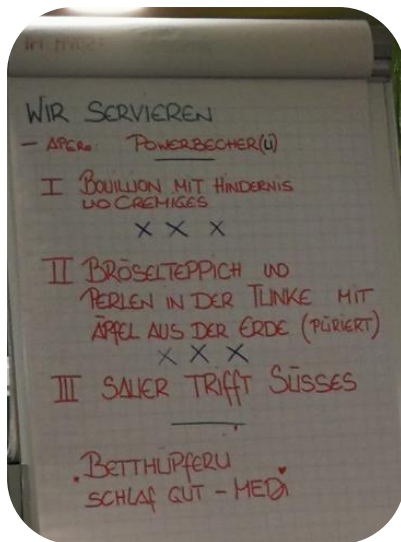 WIR SERVIEREN
- APERO: POWERBECHER(LI)
I BOUILLION MIT HINDERNIS
UND CREMIGES
X X X
II BRÖSELTEPPICH UND
PERLEN IN DER TUNKE MIT
ÄPFEL AUS DER ERDE (PÜRIERT)
X X X
III SAUER TRIFFT SÜSSES
BETTHÜPFERLI
SCHLAF GUT - MEDI